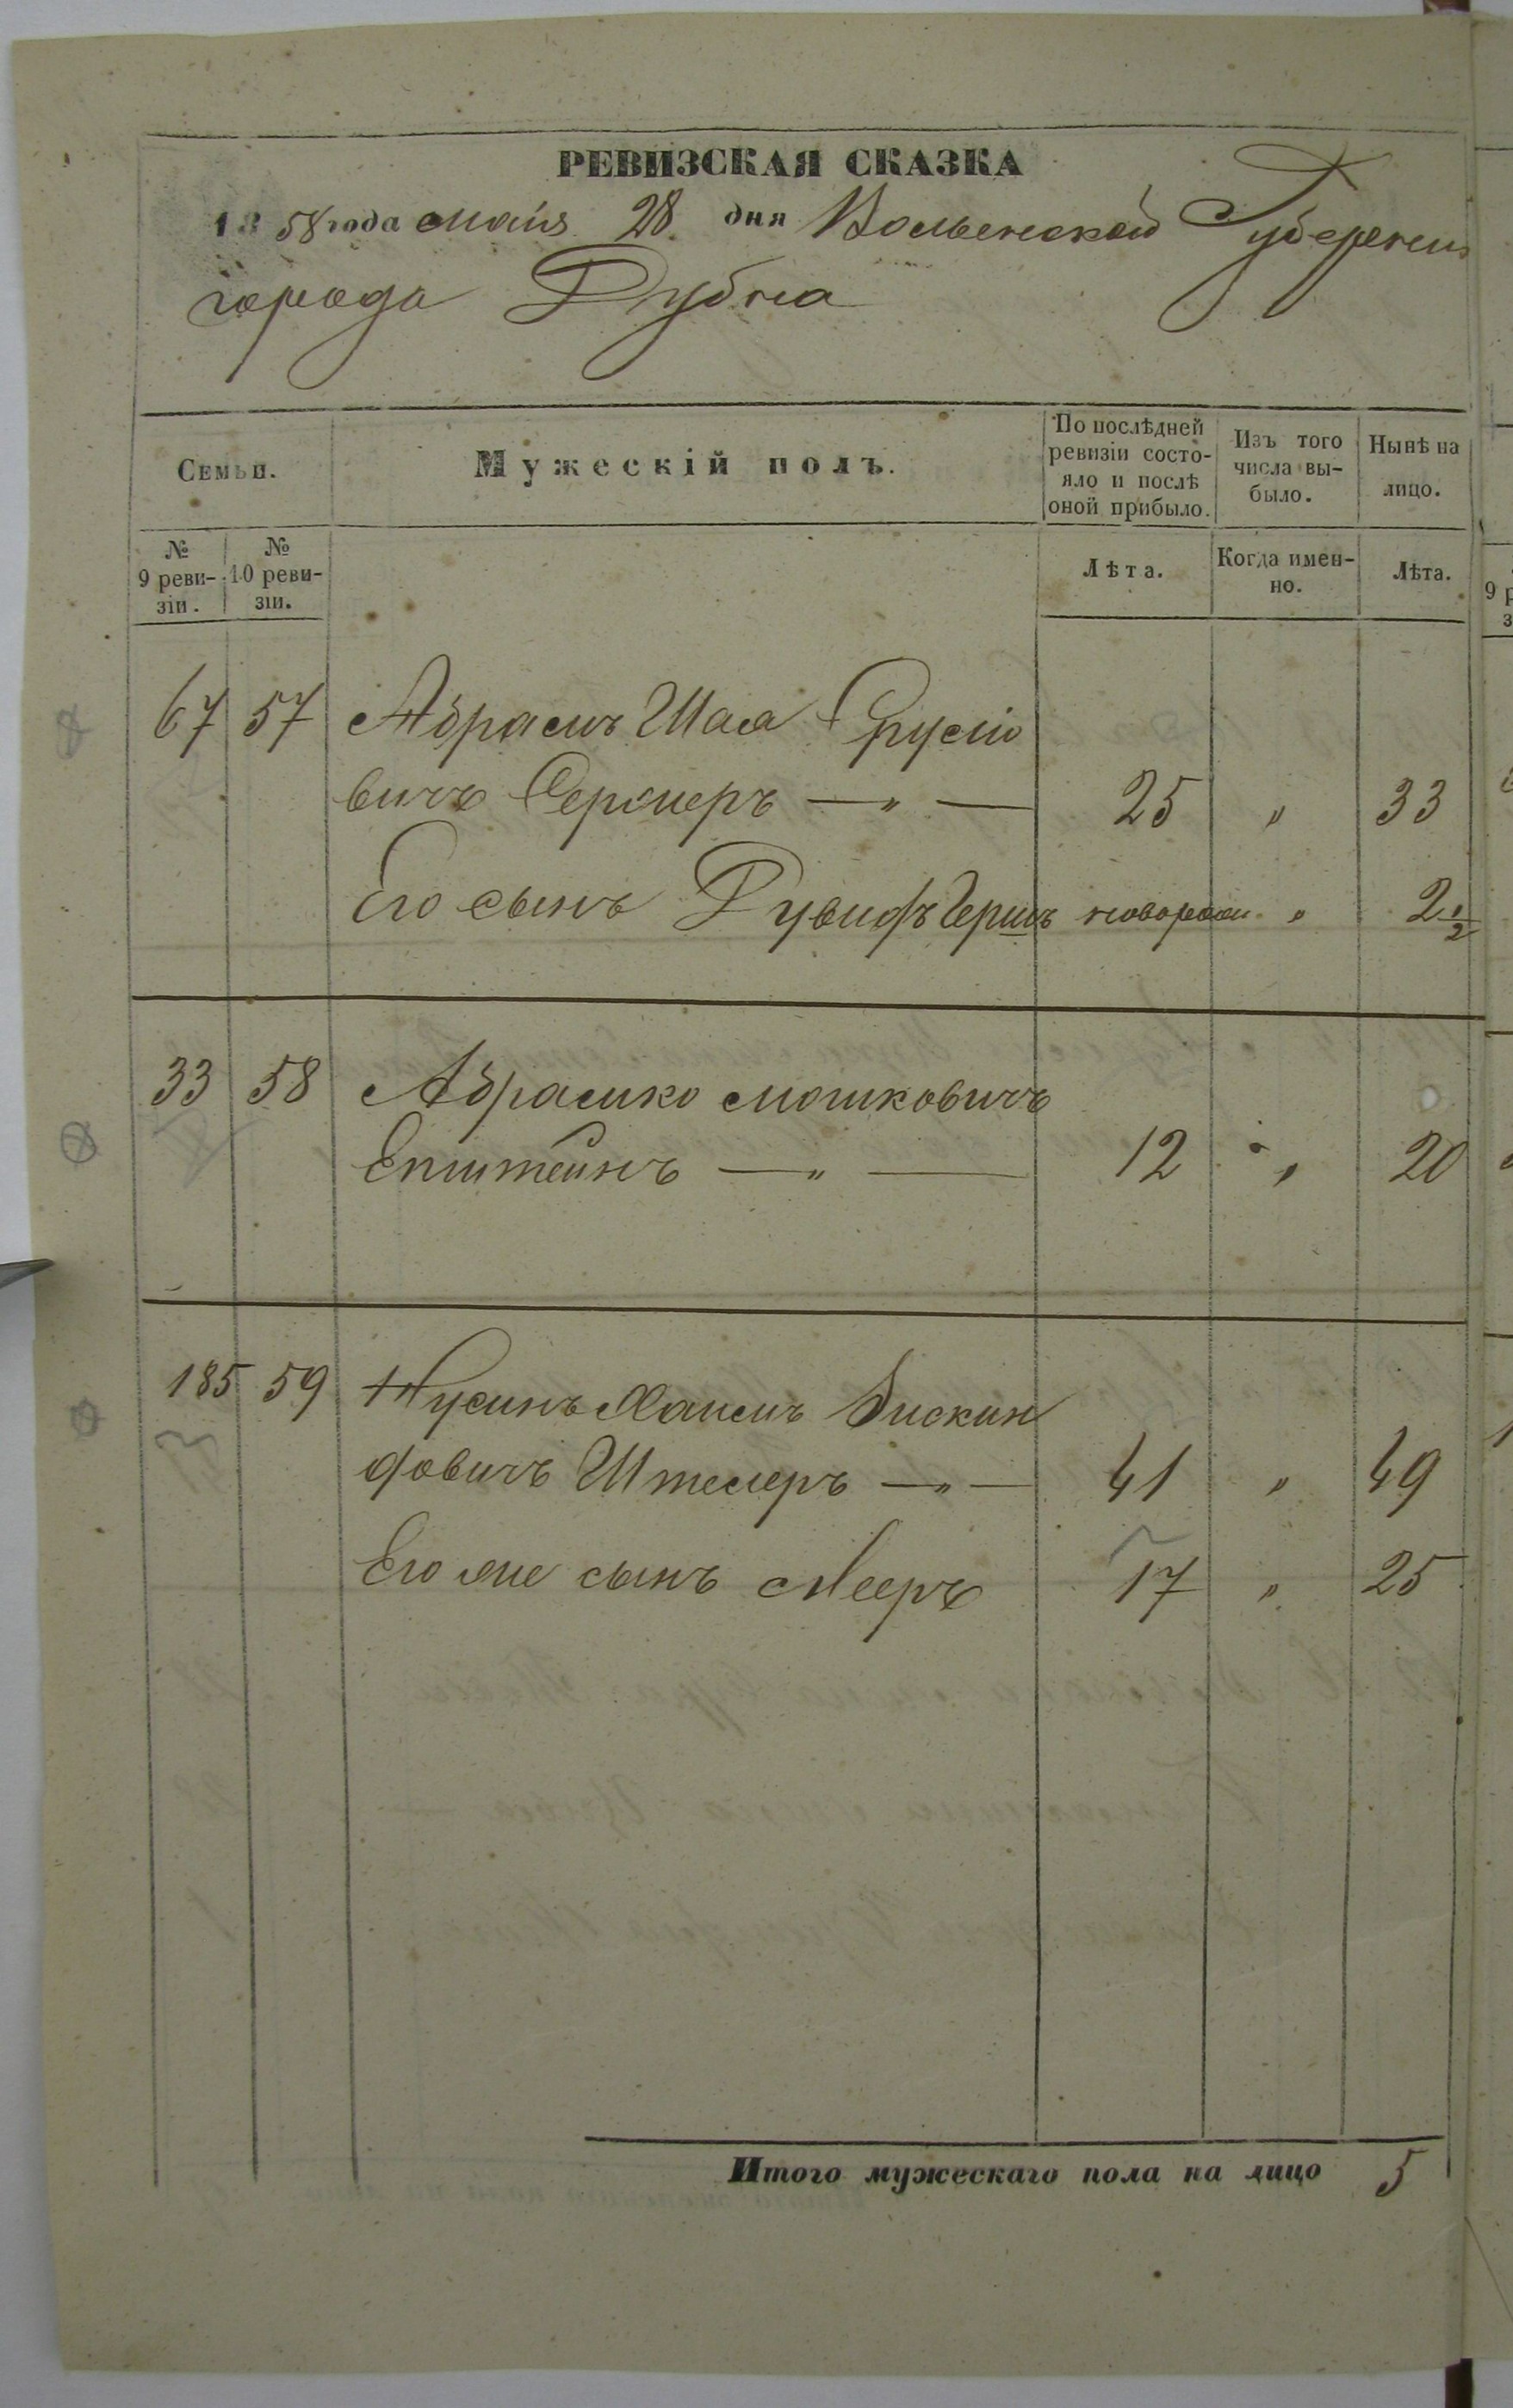 РЕВИЗСКАЯ СКАЗКА
1858 года Маія 28 дня Волынской Губерніи
города Дубна
Семьи.
Мужескій полъ.
По послѣдней ревизіи состо-
яло и послѣ
оной прибыло.
Изъ того
числа вы-
было.
Нынѣ на
лицо.
№
9 реви-
зіи.
№
10 реви-
зіи.
Лѣта.
Когда имен-
но.
Лѣта.
67 57 Абрамъ Шая Сруліо
вичъ Ферлиеръ — „ — 25 „ 33
Его сынъ Дувидъ Гершъ новорожд. „ 2 1/2
33 58 Абрамко Мошковичъ
Епштейнъ — „ — 12 „ 20
185 59 Нусинъ Хаимъ Зискин
довичъ Штемеръ — „ — 41 „ 49
Его же сынъ Мееръ 17 „ 25
Итого мужескаго пола на лицо 5